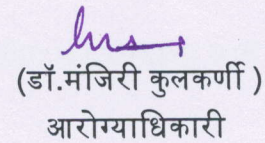 (डॉ.मंजिरी कुलकर्णी )
आरोग्याधिकारी